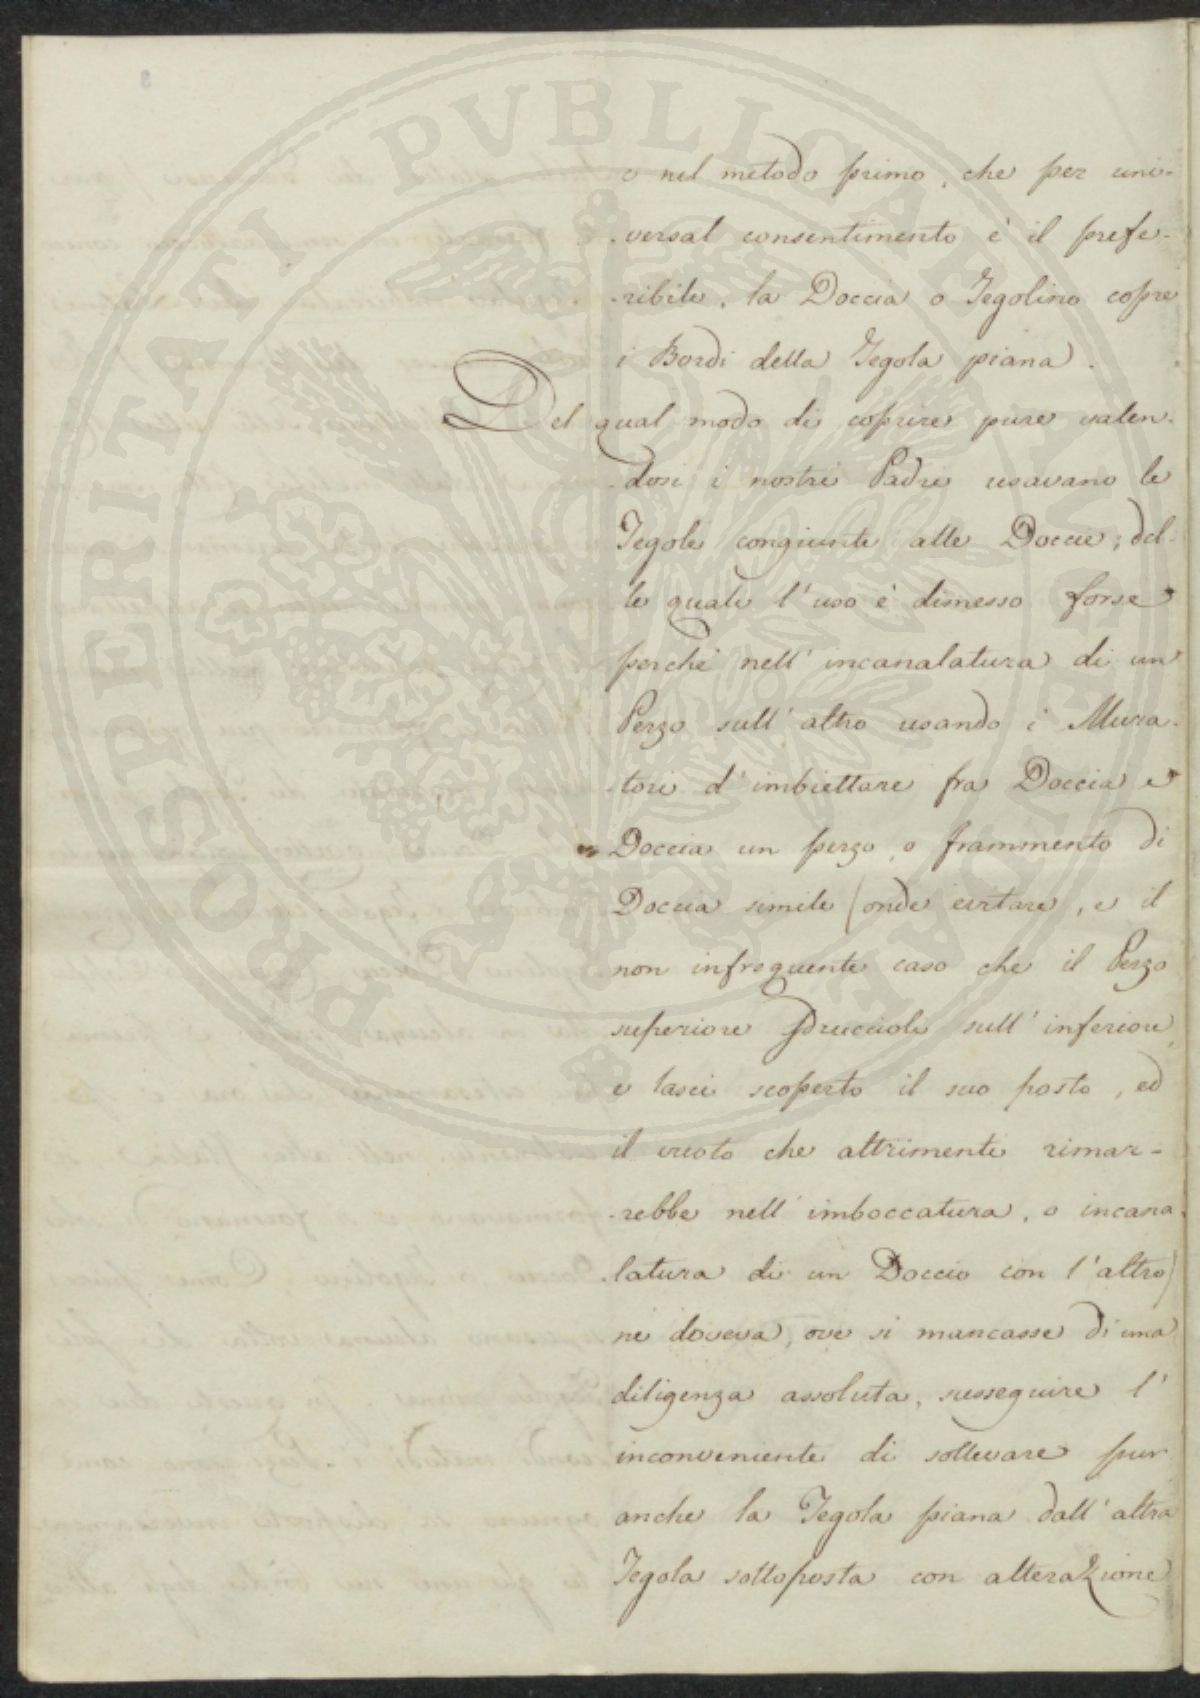 o nel metodo primo, che per uni-
-versal consentimento è il prefe-
-ribile, la Doccia o Tegolino copre
i Bordi della Tegola piana.
Del qual modo di coprire pure valen-
-dosi i nostri Padri usavano le
Tegole congiunte alle Doccie; del-
le quali l'uso è dimesso forse
perchè nell'incanalatura di un
Pezzo sull'altro usando i Mura-
-tori d'imbiettare fra Doccia e
Doccia un pezzo, o frammento di
Doccia simile (onde evitare, e il
non infrequente caso che il Pezzo
superiore sdruccioli sull'inferiore,
e lasci scoperto il suo posto, ed
il vuoto che altrimenti rimar-
-rebbe nell'imboccatura, o incana-
latura di un Doccio con l'altro)
ne doveva, ove si mancasse di una
diligenza assoluta, susseguire l'
inconveniente di sollevare pur
anche la Tegola piana dall'altra
Tegola sottoposta con alterazione
PROSPERITATI PVBLICAE AVGENDAE